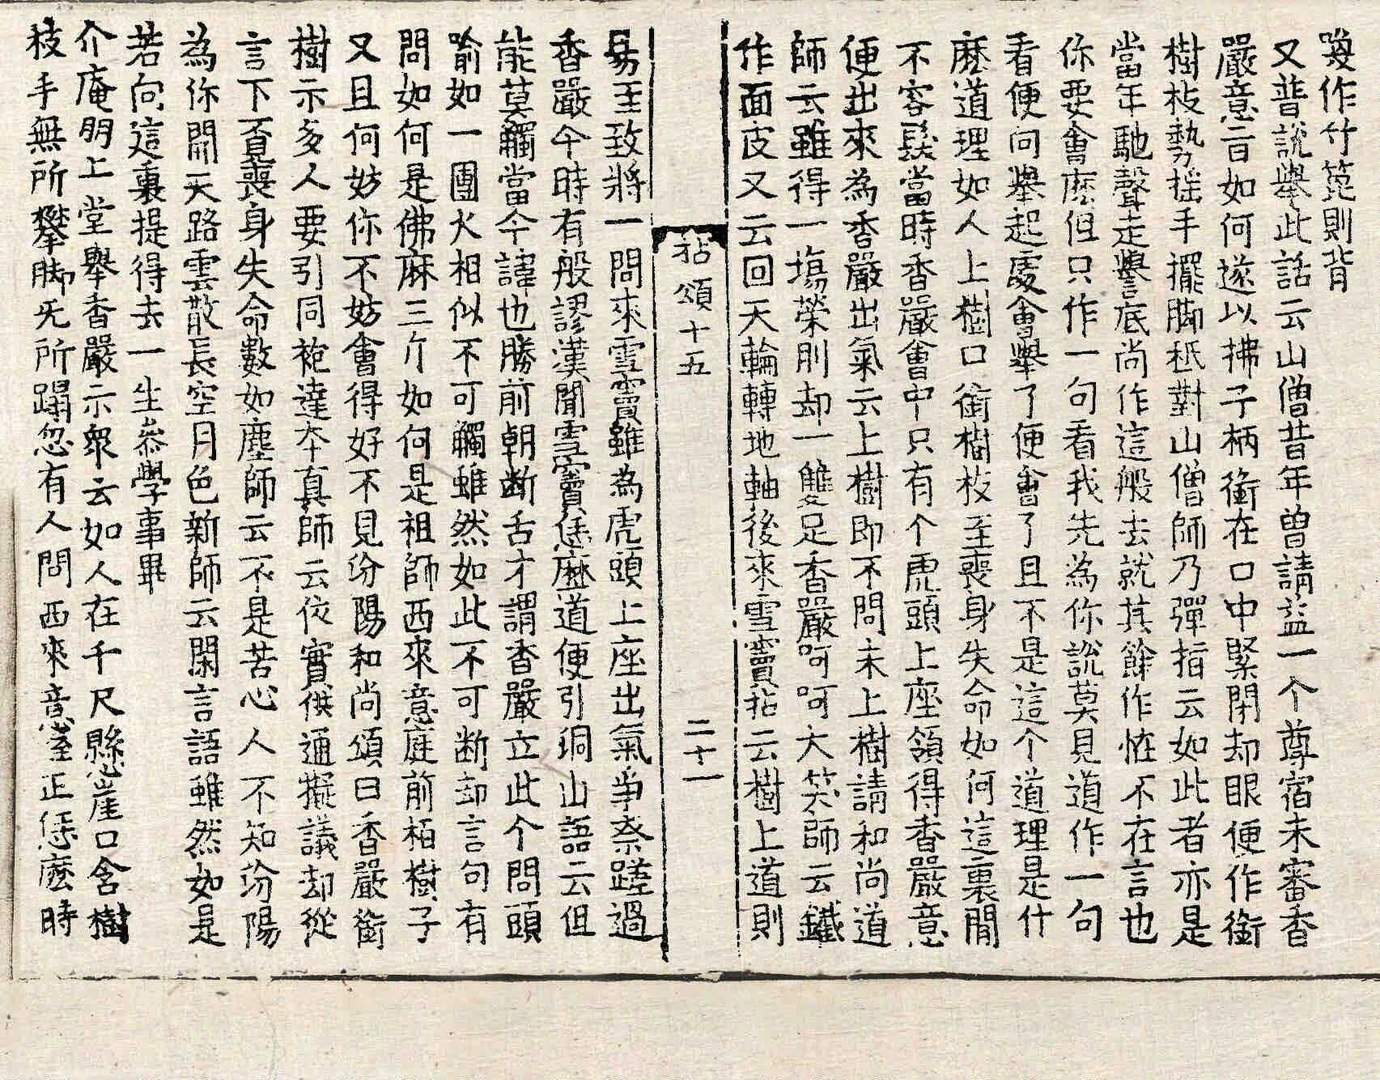 喚作竹篦則背
又普說舉此話云山僧昔年曾請益一个尊宿未審香
嚴意旨如何遂以拂子柄銜在口中緊閉却眼便作銜
樹枝勢揺手擺脚秖對山僧師乃彈指云如此者亦是
當年馳聲走譽底尚作這般去就其餘作恠不在言也
你要會麽但只作一句看我先為你說莫見道作一句
看便向舉起處會舉了便會了且不是這个道理是什
麽道理如人上樹口銜樹枝至喪身失命如何這裏間
不容髮當時香嚴會中只有个虎頭上座領得香嚴意
便出來為香嚴出氣云上樹即不問未上樹請和尚道
師云雖得一塲榮刖却一雙足香嚴呵呵大笑師云鐵
作面皮又云回天輪轉地軸後來雪竇拈云樹上道則
拈頌十五
二十一
易至致將一問來雪竇雖為虎頭上座出氣爭柰蹉過
香嚴今時有般謬漢聞雪竇恁麽道便引洞山語云但
能莫觸當今諱也勝前朝断舌才謂香嚴立此个問頭
喻如一團火相似不可觸雖然如此不可断却言句有
問如何是佛麻三斤如何是祖師西來意庭前栢樹子
又且何妨你不妨會得好不見汾陽和尚頌曰香嚴銜
樹示多人要引同袍達本真師云依實供通擬議却從
言下覔喪身失命數如塵師云不是苦心人不知汾陽
為你開天路雲散長空月色新師云閑言語雖然如是
若向這裏提得去一生叅學事畢
介庵朋上堂舉香嚴示衆云如人在千尺懸崖口含樹
枝手無所攀脚无所蹋忽有人問西來意當正恁麽時